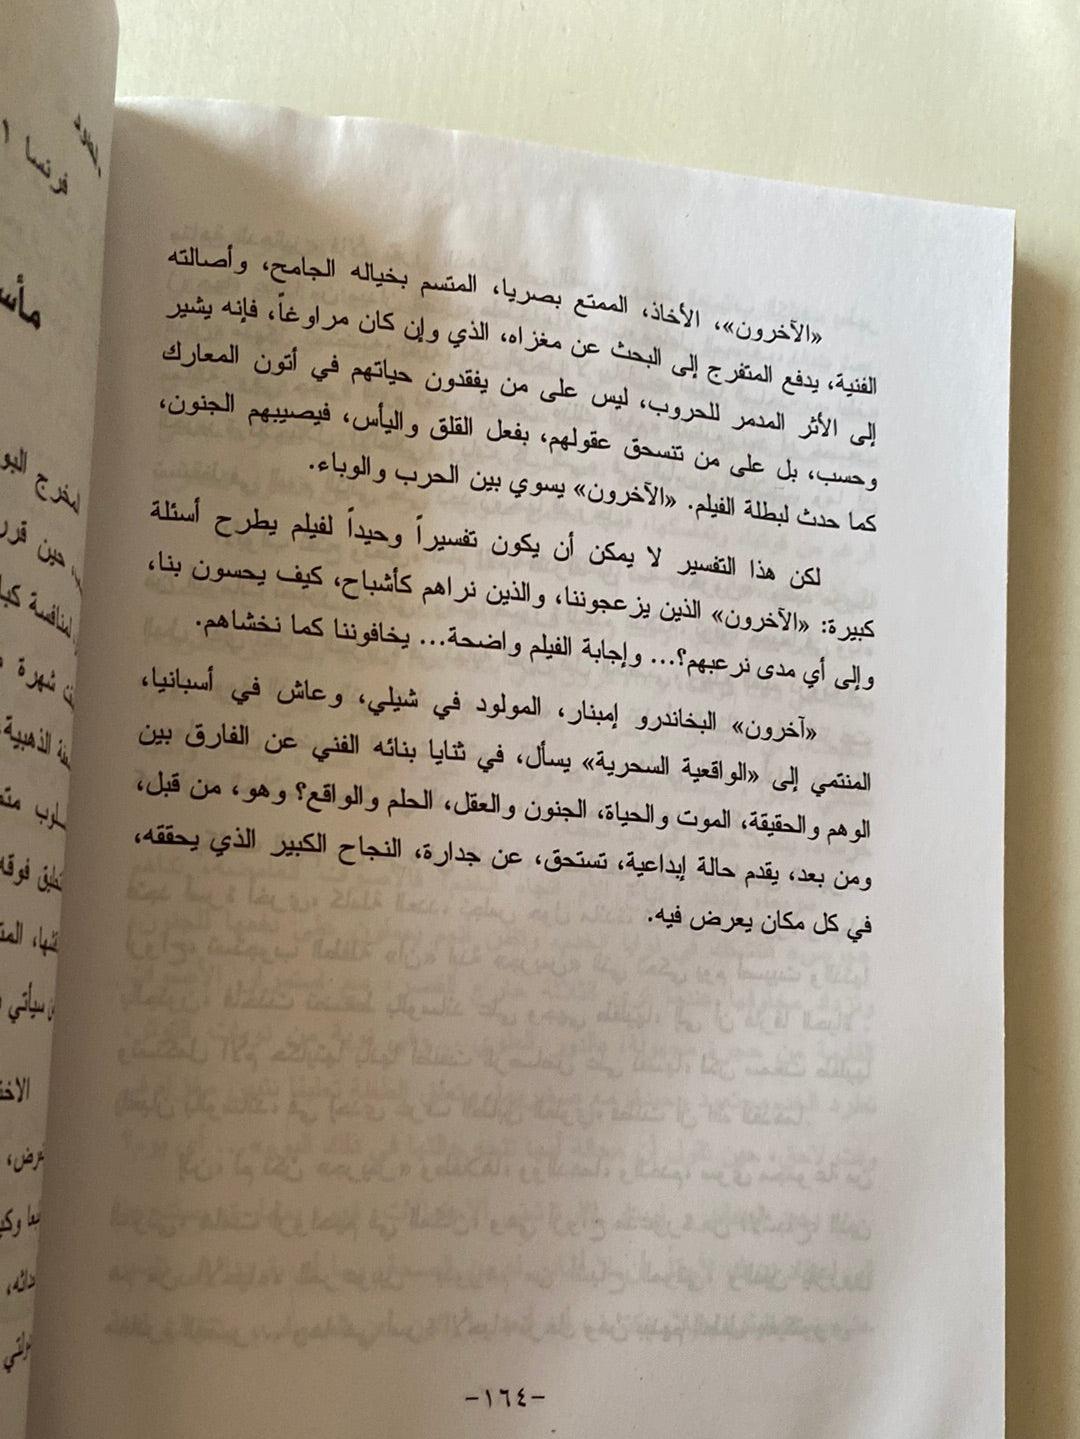 «الآخرون»، الأخاذ، الممتع بصريا، المتسم بخياله الجامح، وأصالته
الفنية، يدفع المتفرج إلى البحث عن مغزاه، الذي وإن كان مراوغاً، فإنه يشير
إلى الأثر المدمر للحروب، ليس على من يفقدون حياتهم في أتون المعارك
وحسب، بل على من تنسحق عقولهم، بفعل القلق واليأس، فيصيبهم الجنون،
كما حدث لبطلة الفيلم. «الآخرون» يسوي بين الحرب والوباء.
لكن هذا التفسير لا يمكن أن يكون تفسيراً وحيداً لفيلم يطرح أسئلة
كبيرة: «الآخرون» الذين يزعجوننا، والذين نراهم كأشباح، كيف يحسون بنا،
وإلى أي مدى نرعبهم؟... وإجابة الفيلم واضحة... يخافوننا كما نخشاهم.
«آخرون» اليخاندرو إمبنار، المولود في شيلي، وعاش في أسبانيا،
المنتمي إلى «الواقعية السحرية» يسأل، في ثنايا بنائه الفني عن الفارق بين
الوهم والحقيقة، الموت والحياة، الجنون والعقل، الحلم والواقع؟ وهو، من قبل،
ومن بعد، يقدم حالة إبداعية، تستحق، عن جدارة، النجاح الكبير الذي يحققه،
في كل مكان يعرض فيه.
-١٦٤-